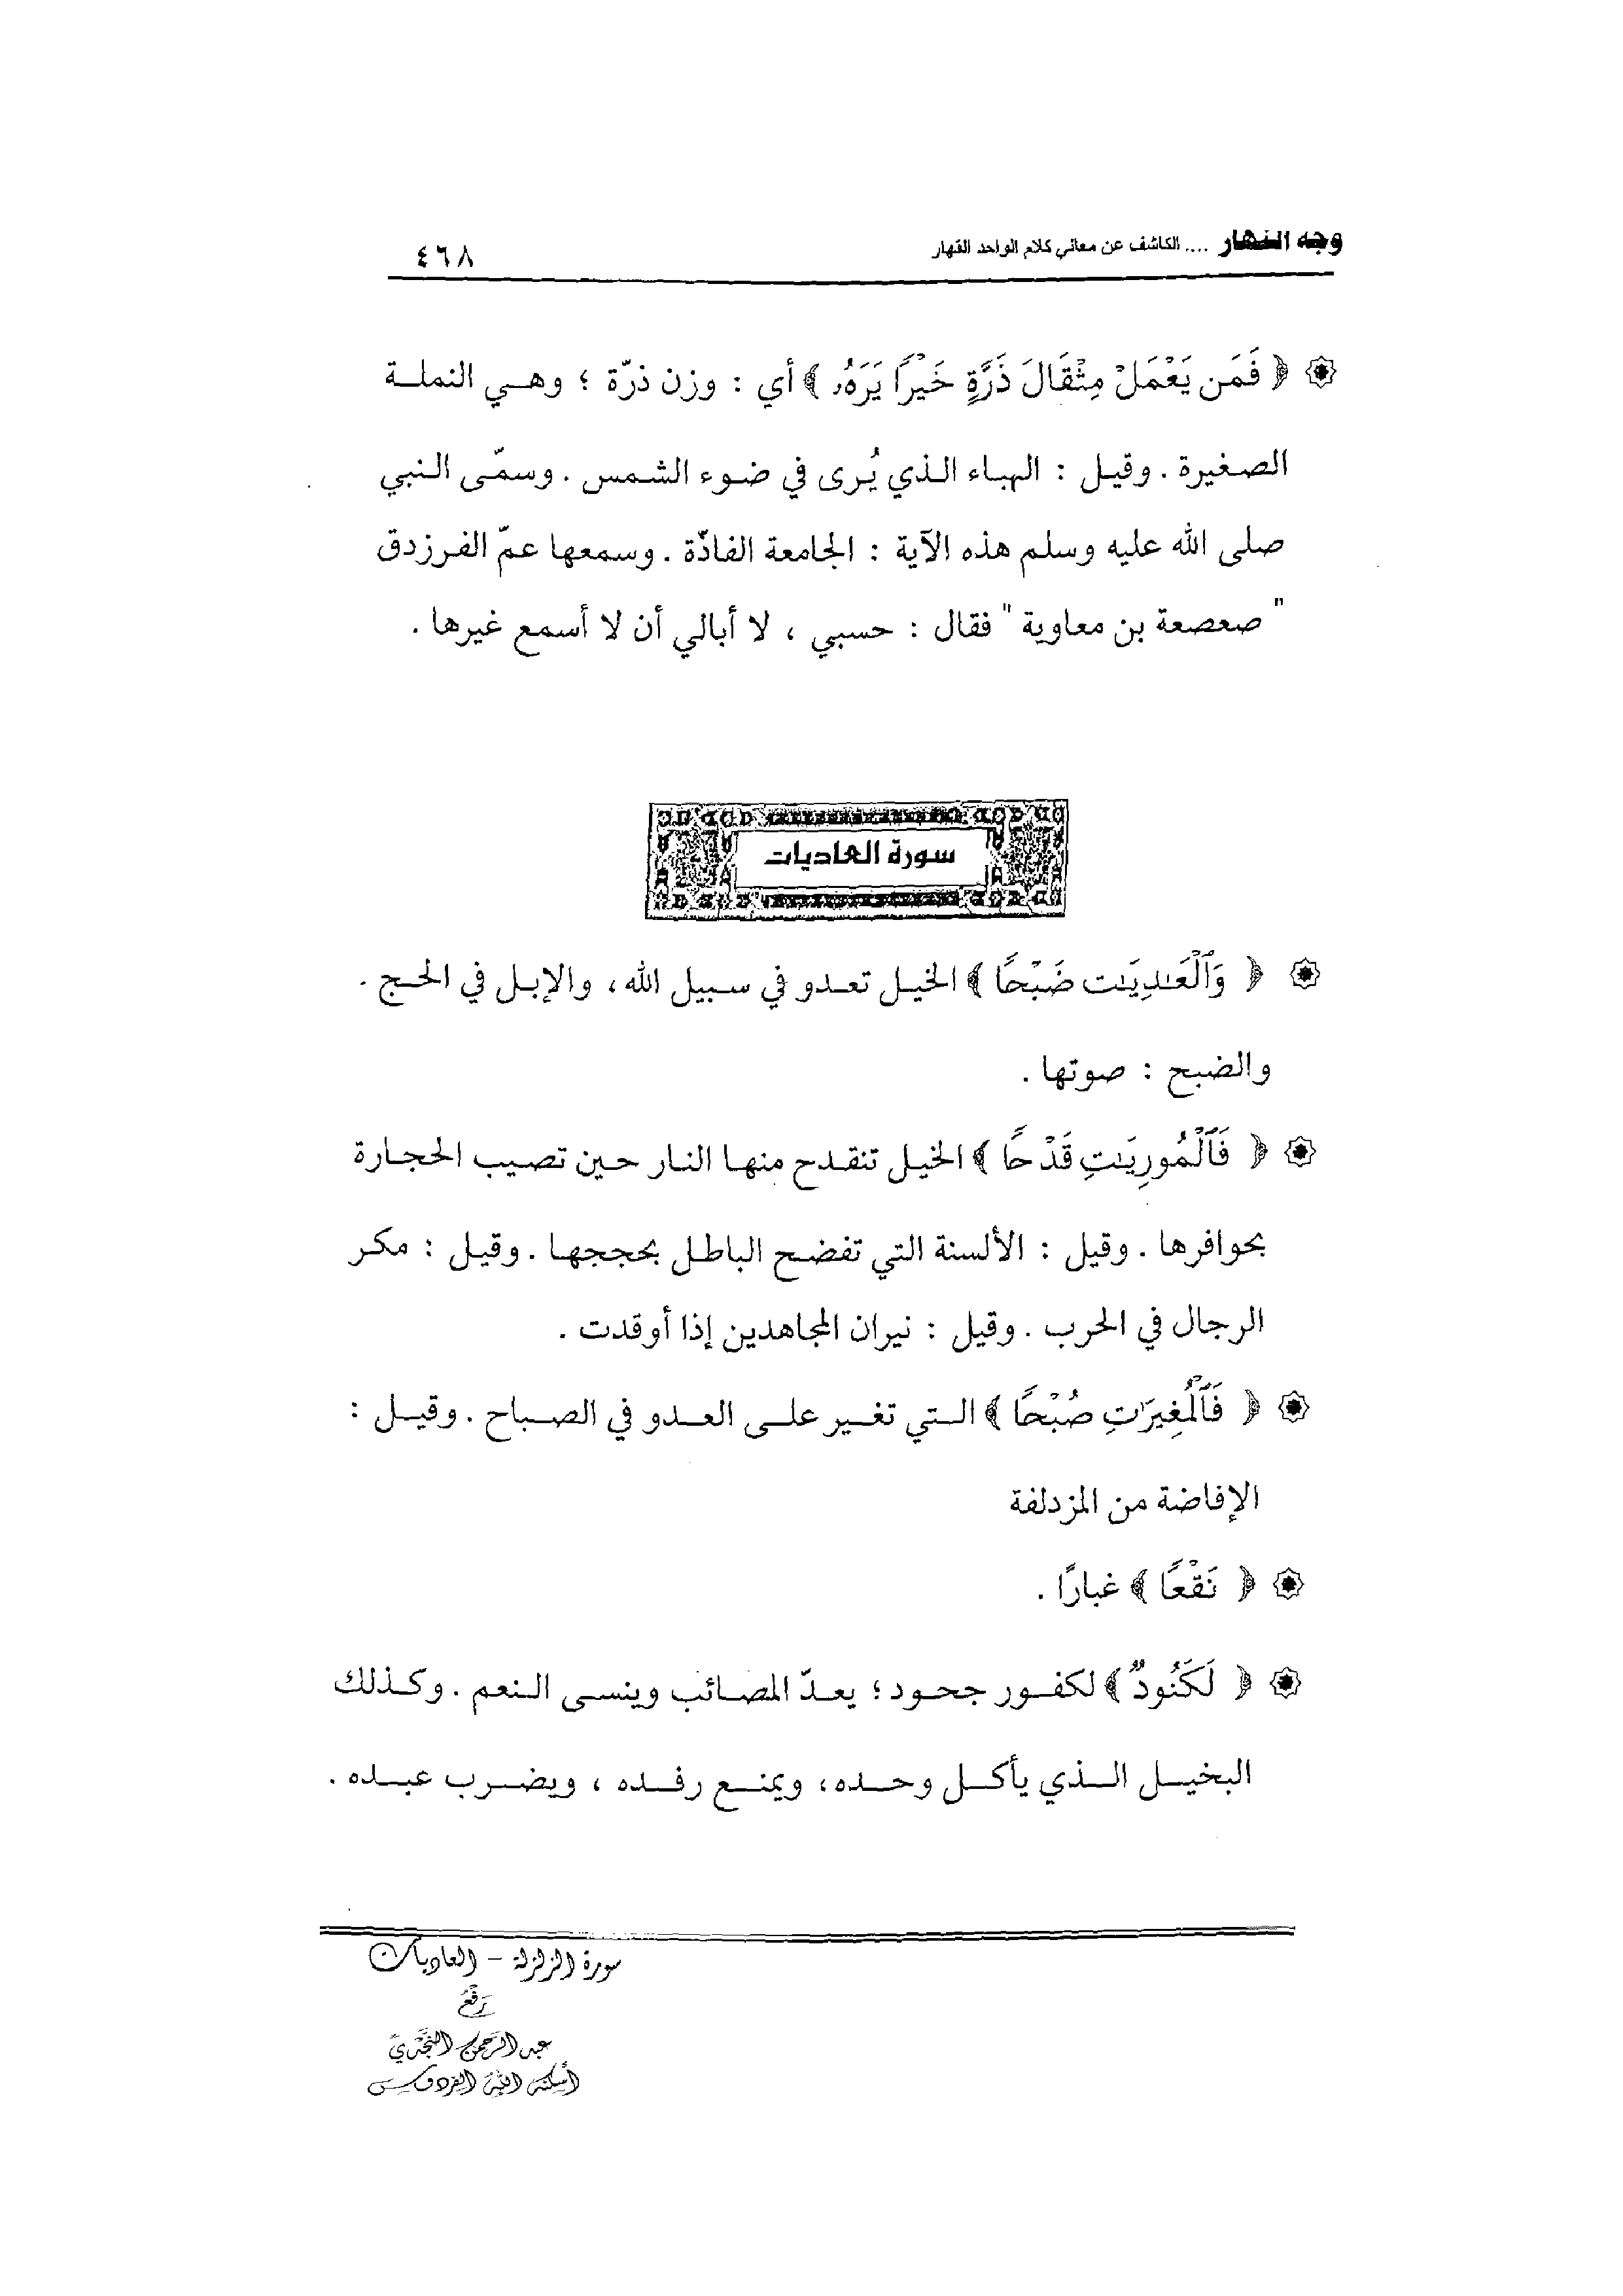 وجه النهار .... الكاشف عن معاني كلام الواحد القهار
٤٦٨
﴿ فَمَن يَعْمَلْ مِثْقَالَ ذَرَّةٍ خَيْرًا يَرَهُۥ ﴾ أي : وزن ذرّة ؛ وهي النملة
الصغيرة . وقيل : الهباء الذي يُرى في ضوء الشمس . وسمّى النبي
صلى الله عليه وسلم هذه الآية : الجامعة الفاذّة . وسمعها عمّ الفرزدق
" صعصعة بن معاوية " فقال : حسبي ، لا أبالي أن لا أسمع غيرها .
سورة العاديات
﴿ وَٱلْعَـٰدِيَـٰت ضَبْحًا ﴾ الخيل تعدو في سبيل الله ، والإبل في الحج .
والضبح : صوتها .
﴿ فَٱلْمُورِيَـٰتِ قَدْحًا ﴾ الخيل تنقدح منها النار حين تصيب الحجارة
بحوافرها . وقيل : الألسنة التي تفضح الباطل بحججها . وقيل : مكر
الرجال في الحرب . وقيل : نيران المجاهدين إذا أوقدت .
﴿ فَٱلْمُغِيرَٰتِ صُبْحًا ﴾ التي تغير على العدو في الصباح . وقيل :
الإفاضة من المزدلفة
﴿ نَقْعًا ﴾ غبارًا .
﴿ لَكَنُودٌ ﴾ لكفور جحود ؛ يعدّ المصائب وينسى النعم . وكذلك
البخيل الذي يأكل وحده ، ويمنع رفده ، ويضرب عبده .
سورة الزلزلة - العاديات
رَفْعُ
عبد الرحمن النجدي
أسكنه الله الفردوس